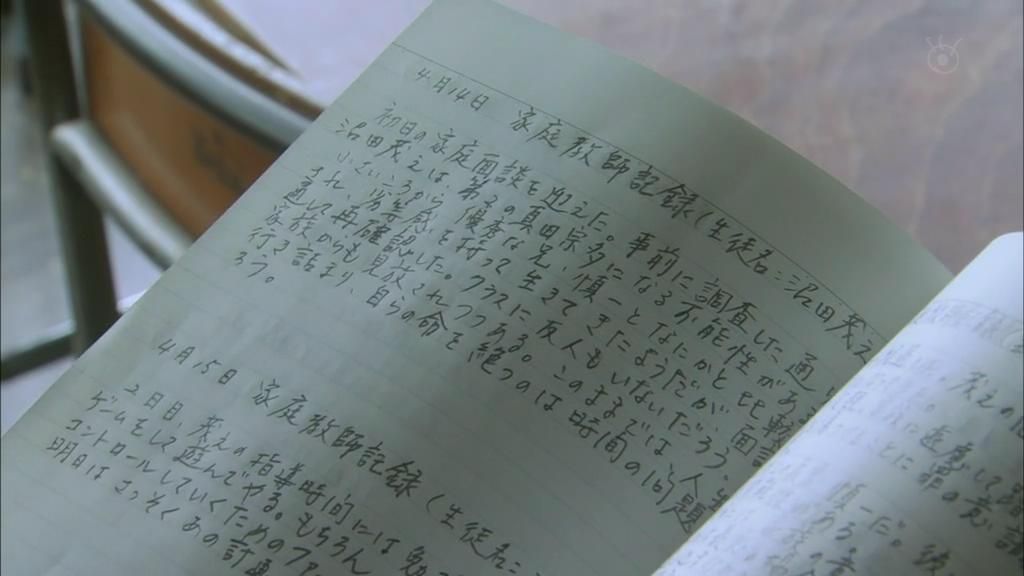 4月14日 家庭教師記録(生徒名:沼田茂之
初日の家庭面談を迎えた。事前に調査した通り
沼田茂之は、第2の真田宗多になる可能性がある
小さいころから優秀な兄、慎一となにかと比較
され、劣等感を持って生きてきたようだが、面談
通して再確認した。クラスに友人もいないだろう。
家族からも見放されつつある。このままでは、人生
行き詰まり、自らの命を絶つのは時間の問題
ろう。
4月15日 家庭教師記録(生徒名:
2日目、茂之の指導時間には勉
ゲームをして遊んでやる。もちろん
コントロールしていくためのファ
明日はさっそくあの計画
茂之の
に遠慮して
慎一だ。後
ある。